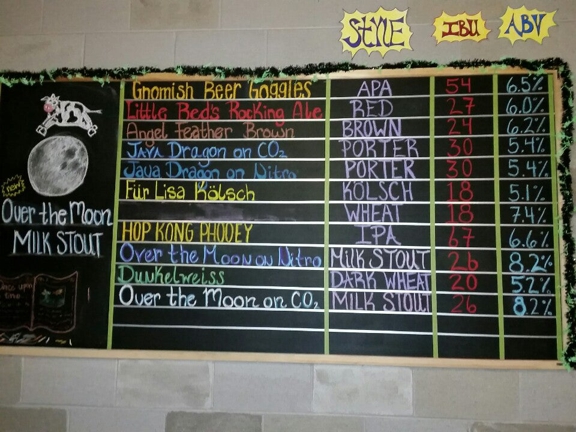 STYLE IBU ABV
Gnomish Beer Goggles APA 54 6.5%
Little Red's Rocking Ale RED 27 6.0%
Angel Feather Brown BROWN 24 6.2%
Java Dragon on CO2 PORTER 30 5.4%
Java Dragon on Nitro PORTER 30 5.4%
Für Lisa Kölsch KÖLSCH 18 5.1%
WHEAT 18 7.4%
HOP KONG PHOOEY IPA 67 6.6%
Over the Moon on Nitro MILK STOUT 26 8.2%
Dunkelweiss DARK WHEAT 20 5.2%
Over the Moon on CO2 MILK STOUT 26 8.2%
Over the Moon
MILK STOUT